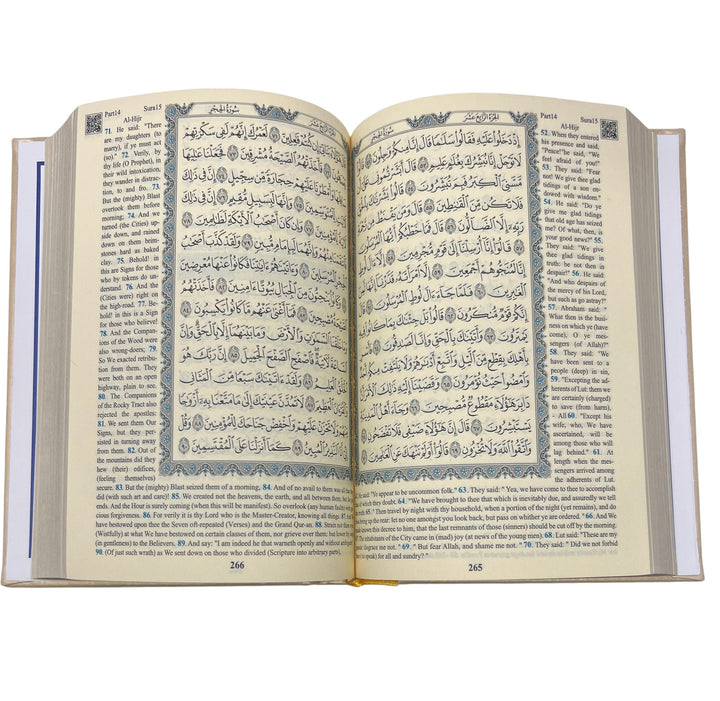 Part14 Sura15
الجزء الرابع عشر
سورة الحجر
Al-Hijr
52. When they entered
his presence and said,
"Peace!"he said, "We
feel afraid of you!"
53. They said: "Fear
not! We give thee glad
tidings of a son en-
dowed with wisdom."
54. He said: "Do ye
give me glad tidings
that old age has seized
me? Of what, then, is
your good news?" 55.
They said: "We give
thee glad tidings in
truth: be not then in
despair!" 56. He said:
"And who despairs of
the mercy of his Lord,
but such as go astray?"
57. Abraham said:
"What then is the busi-
ness on which ye (have
come), O ye mes-
sengers (of Allah)?"
58. They said: "We
have been sent to a
people (deep) in sin,
59. "Excepting the ad-
herents of Lut: them we
are certainly (charged)
to save (from harm),
- All 60. "Except his
wife, who, We have
ascertained, will be
among those who will
lag behind." 61. At
length when the mes-
sengers arrived among
the adherents of Lut,
إِذْ دَخَلُوا عَلَيْهِ فَقَالُوا سَلَامًا قَالَ إِنَّا مِنكُمْ وَجِلُونَ ٥٢ قَالُوا
لَا تَوْجَلْ إِنَّا نُبَشِّرُكَ بِغُلَامٍ عَلِيمٍ ٥٣ قَالَ أَبَشَّرْتُمُونِي عَلَىٰ أَن
مَّسَّنِيَ الْكِبَرُ فَبِمَ تُبَشِّرُونَ ٥٤
مِّنَ الْقَانِطِينَ ٥٥
رَبِّهِ إِلَّا الضَّالُّونَ ٥٦ قَالَ فَمَا خَطْبُكُمْ أَيُّهَا الْمُرْسَلُونَ
٥٧ قَالُوا إِنَّا أُرْسِلْنَا إِلَىٰ قَوْمٍ مُّجْرِمِينَ ٥٨ إِلَّا آلَ لُوطٍ
إِنَّا لَمُنَجُّوهُمْ أَجْمَعِينَ ٥٩ إِلَّا امْرَأَتَهُ
الْغَابِرِينَ ٦٠ فَلَمَّا جَاءَ آلَ لُوطٍ الْمُرْسَلُونَ ٦١
مُّنكَرُونَ ٦٢ قَالُوا بَلْ جِئْنَاكَ بِمَا كَانُوا فِيهِ
يَمْتَرُونَ ٦٣ وَأَتَيْنَاكَ بِالْحَقِّ وَإِنَّا لَصَادِقُونَ ٦٤ فَأَسْرِ
بِأَهْلِكَ بِقِطْعٍ مِّنَ اللَّيْلِ وَاتَّبِعْ أَدْبَارَهُمْ وَلَا يَلْتَفِتْ مِنكُمْ أَحَدٌ
وَامْضُوا حَيْثُ تُؤْمَرُونَ ٦٥ وَقَضَيْنَا إِلَيْهِ ذَٰلِكَ الْأَمْرَ أَنَّ
دَابِرَ هَٰؤُلَاءِ مَقْطُوعٌ مُّصْبِحِينَ ٦٦ وَجَاءَ أَهْلُ الْمَدِينَةِ
يَسْتَبْشِرُونَ ٦٧ قَالَ إِنَّ هَٰؤُلَاءِ ضَيْفِي فَلَا تَفْضَحُونِ
٦٨ وَاتَّقُوا اللَّهَ وَلَا تُخْزُونِ ٦٩ قَالُوا أَوَلَمْ نَنْهَكَ عَنِ الْعَالَمِينَ ٧٠
said: "Ye appear to be uncommon folk." 63. They said: " Yea, we have come to thee to accomplish
they doubt. 64. "We have brought to thee that which is inevitably due, and assuredly we tell
65. "Then travel by night with thy household, when a portion of the night (yet remains), and do
up the rear: let no one amongst you look back, but pass on whither ye are ordered. " 66. And We
known this decree to him, that the last remnants of those (sinners) should be cut off by the morning.
inhabitants of the City came in (mad) joy (at news of the young men). 68. Lut said: "These are my
disgrace me not. " 69. " But fear Allah, and shame me not. " 70. They said: " Did we not forbid
to speak) for all and sundry? "
265
Part14 Sura15
سورة الحجر
الجزء الرابع عشر
Al-Hijr
71. He said: "There
are my daughters (to
marry), if ye must act
(so)." 72. Verily, by
thy life (O Prophet), in
their wild intoxication,
they wander in distrac-
tion, to and fro. 73.
But the (mighty) Blast
overtook them before
morning; 74. And we
turned (the Cities) up-
side down, and rained
down on them brim-
stones hard as baked
clay. 75. Behold! in
this are Signs for those
who by tokens do un-
derstand. 76. And the
(Cities were) right on
the high-road. 77. Be-
hold! in this is a Sign
for those who believe!
78. And the Compan-
ions of the Wood were
also wrong-doers; 79.
So We exacted retribu-
tion from them. They
were both on an open
highway, plain to see.
80. The Companions
of the Rocky Tract also
rejected the apostles:
81. We sent them Our
Signs, but they per-
sisted in turning away
from them. 82. Out of
the mountains did they
hew (their) edifices,
(feeling themselves)
قَالَ هَٰؤُلَاءِ بَنَاتِي إِن كُنتُمْ فَاعِلِينَ ٧١ لَعَمْرُكَ إِنَّهُمْ لَفِي سَكْرَتِهِمْ
يَعْمَهُونَ ٧٢ فَأَخَذَتْهُمُ الصَّيْحَةُ مُشْرِقِينَ ٧٣ فَجَعَلْنَا عَالِيَهَا
سَافِلَهَا وَأَمْطَرْنَا عَلَيْهِمْ حِجَارَةً مِّن سِجِّيلٍ ٧٤ إِنَّ فِي ذَٰلِكَ
لَآيَاتٍ لِّلْمُتَوَسِّمِينَ ٧٥ وَإِنَّهَا لَبِسَبِيلٍ مُّقِيمٍ ٧٦ إِنَّ فِي ذَٰلِكَ
لَآيَةً لِّلْمُؤْمِنِينَ ٧٧ وَإِن كَانَ أَصْحَابُ الْأَيْكَةِ لَظَالِمِينَ ٧٨
فَانتَقَمْنَا مِنْهُمْ وَإِنَّهُمَا لَبِإِمَامٍ مُّبِينٍ ٧٩ وَلَقَدْ كَذَّبَ أَصْحَابُ
الْحِجْرِ الْمُرْسَلِينَ ٨٠ وَآتَيْنَاهُمْ آيَاتِنَا فَكَانُوا عَنْهَا مُعْرِضِينَ
٨١ وَكَانُوا يَنْحِتُونَ مِنَ الْجِبَالِ بُيُوتًا آمِنِينَ ٨٢ فَأَخَذَتْهُمُ
الصَّيْحَةُ مُصْبِحِينَ ٨٣ فَمَا أَغْنَىٰ عَنْهُم مَّا كَانُوا يَكْسِبُونَ ٨٤
وَمَا خَلَقْنَا السَّمَاوَاتِ وَالْأَرْضَ وَمَا بَيْنَهُمَا إِلَّا بِالْحَقِّ وَإِنَّ
السَّاعَةَ لَآتِيَةٌ فَاصْفَحِ الصَّفْحَ الْجَمِيلَ ٨٥ إِنَّ رَبَّكَ هُوَ
الْخَلَّاقُ الْعَلِيمُ ٨٦ وَلَقَدْ آتَيْنَاكَ سَبْعًا مِّنَ الْمَثَانِي
وَالْقُرْآنَ الْعَظِيمَ ٨٧ لَا تَمُدَّنَّ عَيْنَيْكَ إِلَىٰ مَا مَتَّعْنَا بِهِ أَزْوَاجًا
مِّنْهُمْ وَلَا تَحْزَنْ عَلَيْهِمْ وَاخْفِضْ جَنَاحَكَ لِلْمُؤْمِنِينَ ٨٨
وَقُلْ إِنِّي أَنَا النَّذِيرُ الْمُبِينُ ٨٩ كَمَا أَنزَلْنَا عَلَى الْمُقْتَسِمِينَ ٩٠
secure. 83. But the (mighty) Blast seized them of a morning, 84. And of no avail to them was all that
did (with such art and care)! 85. We created not the heavens, the earth, and all between them, but
ends. And the Hour is surely coming (when this will be manifest). So overlook (any human faults) with
cious forgiveness. 86. For verily it is thy Lord who is the Master-Creator, knowing all things. 87. And
have bestowed upon thee the Seven oft-repeated (Verses) and the Grand Qur-an. 88. Strain not thine
(Wistfully) at what We have bestowed on certain classes of them, nor grieve over them: but lower thy
(in gentleness) to the Believers. 89. And say: "I am indeed he that warneth openly and without
90. (Of just such wrath) as We sent down on those who divided (Scripture into arbitrary parts).
266